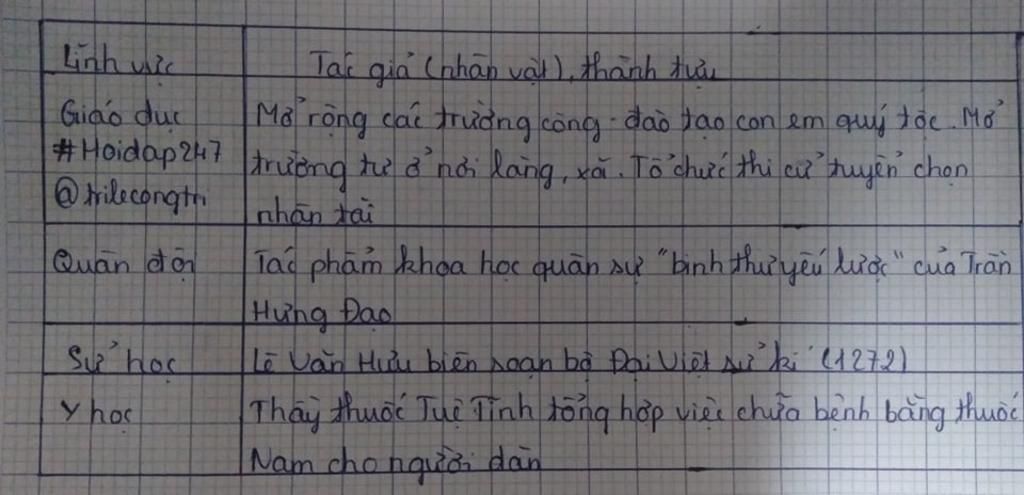 Lĩnh vực
Tác giả (nhân vật), thành tựu
Giáo dục
#Hoidap247
@trilecongtri
Mở rộng các trường công đào tạo con em quý tộc. Mở
trường tư ở nơi làng, xã. Tổ chức thi cử tuyển chọn
nhân tài
Quân đội
Tác phẩm khoa học quân sự "binh thư yếu lược" của Trần
Hưng Đạo
Sử học
Lê Văn Hưu biên soạn bộ Đại Việt sử kí (1272)
Y học
Thầy thuốc Tuệ Tĩnh tổng hợp việc chữa bệnh bằng thuốc
Nam cho người dân